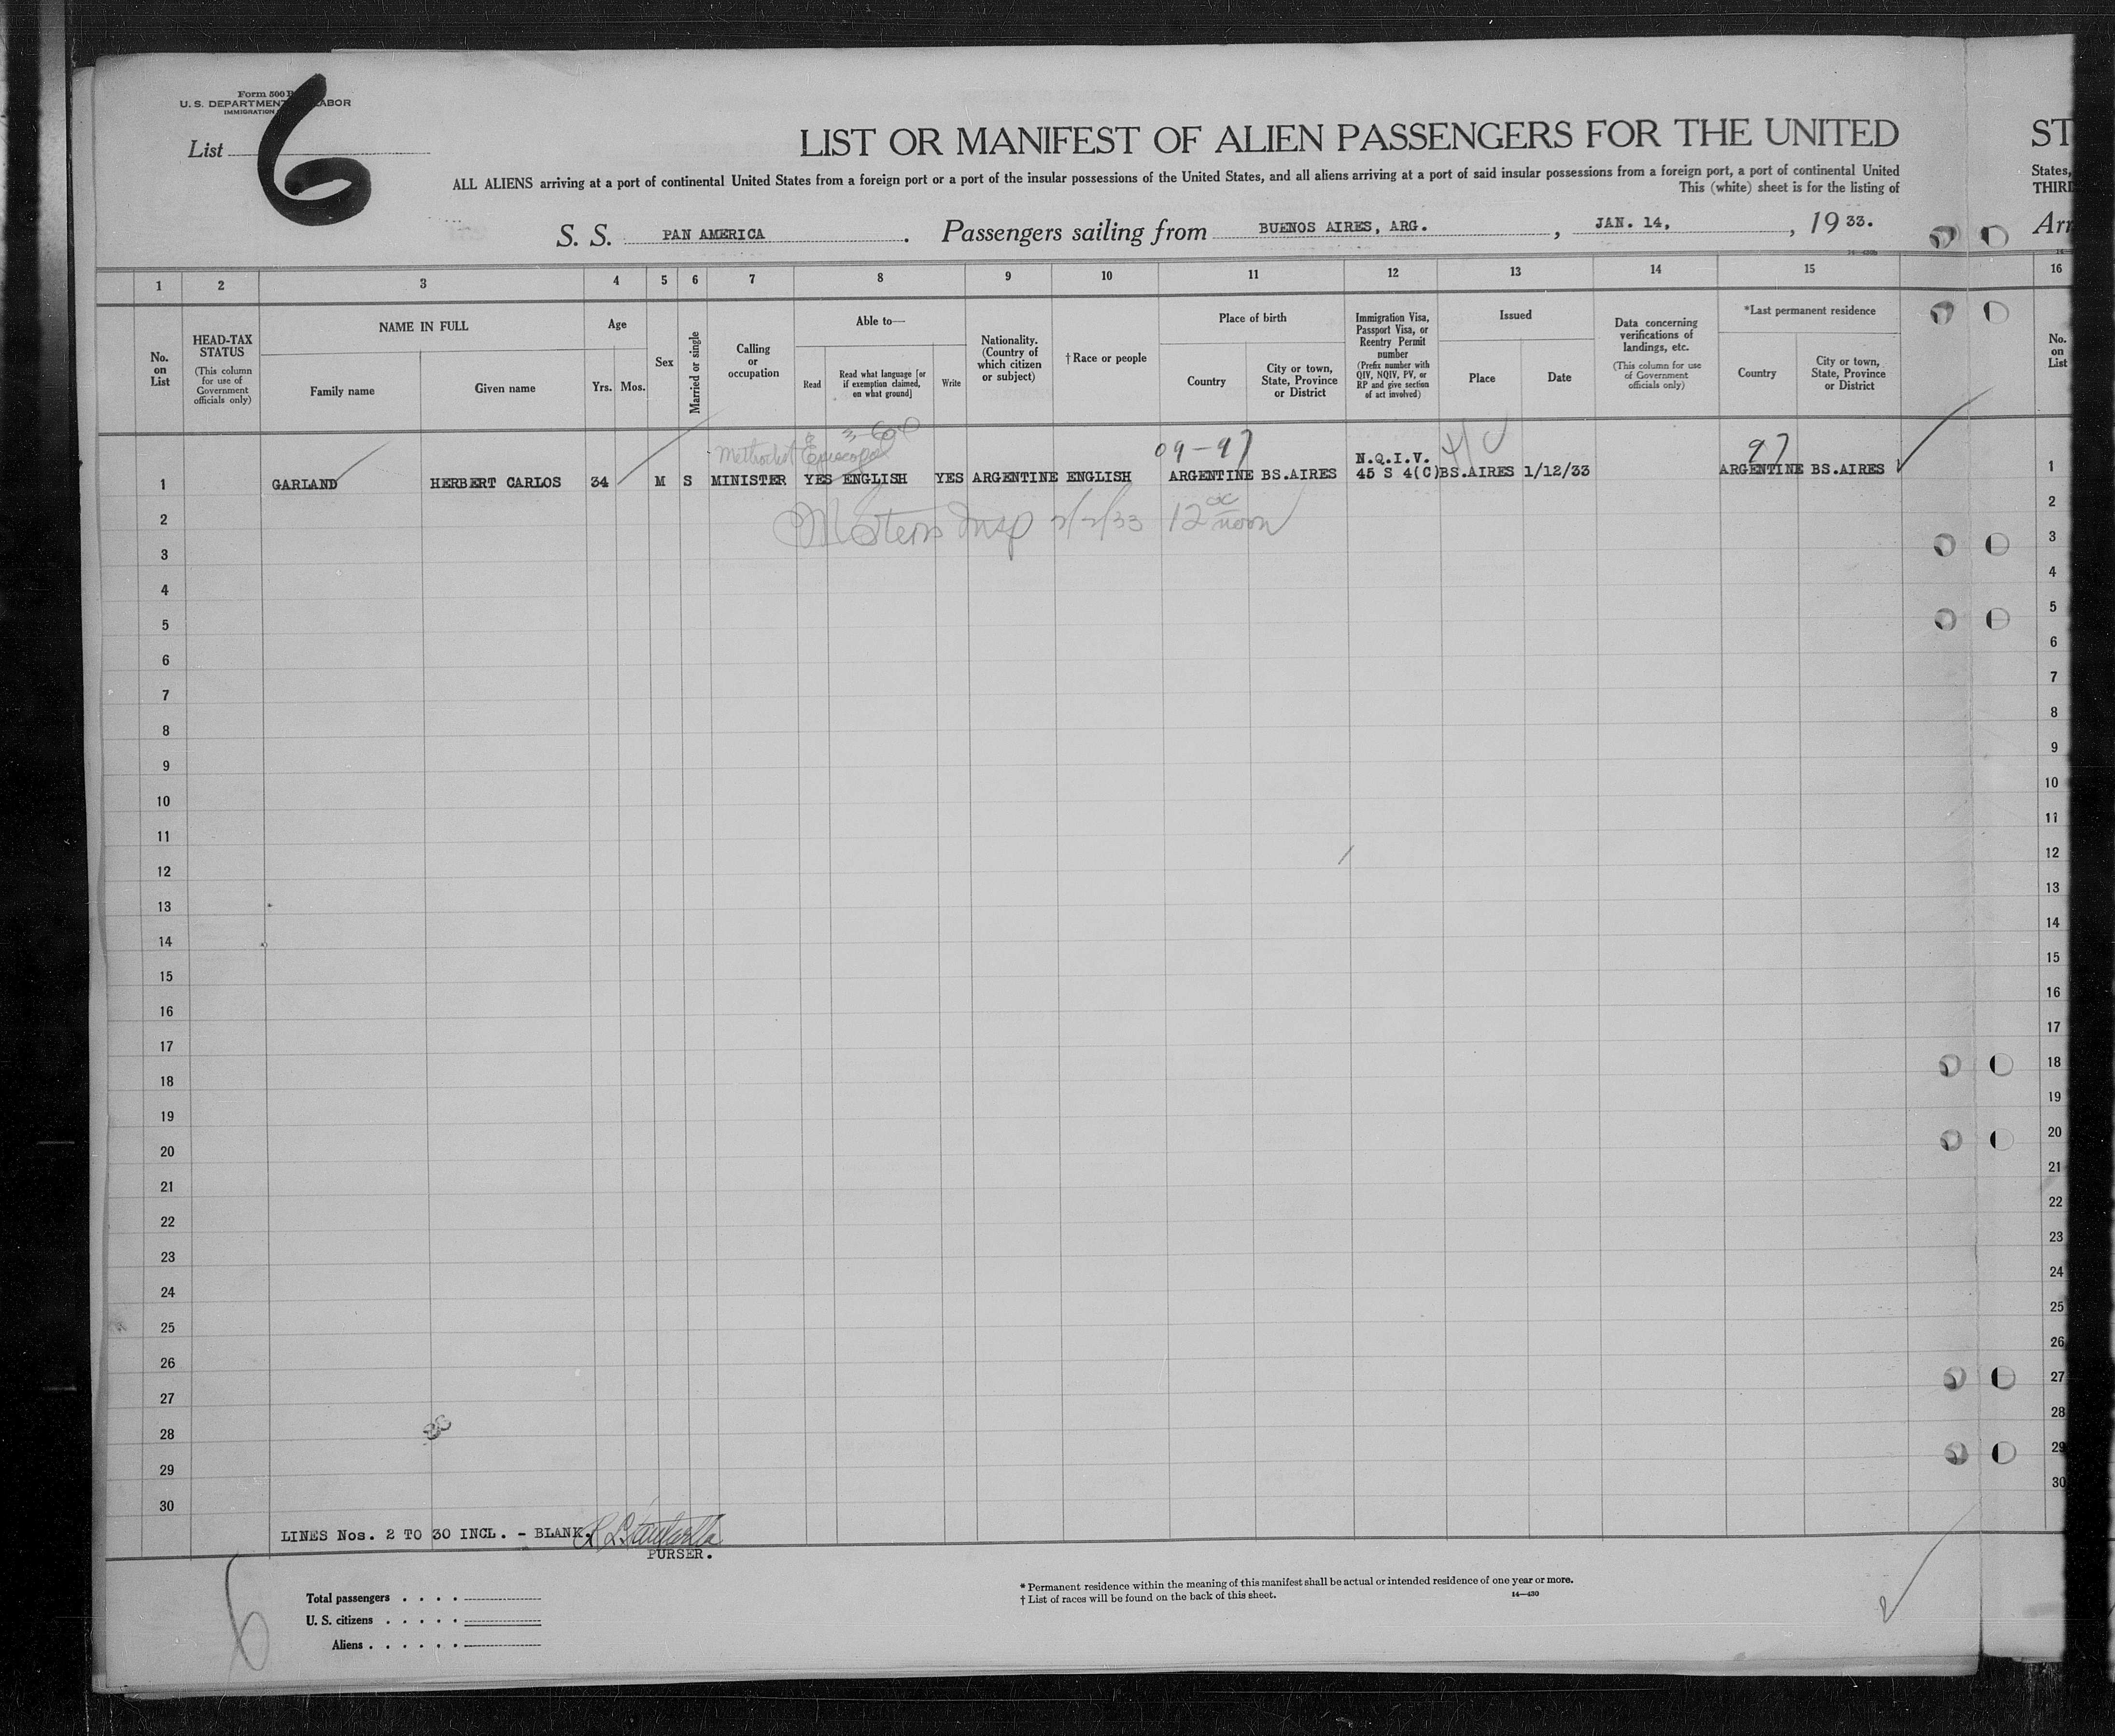 Form 500 B
U. S. DEPARTMENT LABOR
IMMIGRATION
List 6
LIST OR MANIFEST OF ALIEN PASSENGERS FOR THE UNITED
ST
ALL ALIENS arriving at a port of continental United States from a foreign port or a port of the insular possessions of the United States, and all aliens arriving at a port of said insular possessions from a foreign port, a port of continental United
States,
This (white) sheet is for the listing of
THIRD
S. S. PAN AMERICA. Passengers sailing from BUENOS AIRES, ARG., JAN. 14, , 19 33.
Arr
1 2 3 4 5 6 7 8 9 10 11 12 13 14 15 16
No. on List
HEAD-TAX STATUS (This column for use of Government officials only)
NAME IN FULL
Family name
Given name
Age
Yrs. Mos.
Sex
Married or single
Calling or occupation
Able to—
Read
Read what language [or if exemption claimed, on what ground]
Write
Nationality. (Country of which citizen or subject)
†Race or people
Place of birth
Country
City or town, State, Province or District
Immigration Visa, Passport Visa, or Reentry Permit number (Prefix number with QIV, NQIV, PV, or RP and give section of act involved)
Issued
Place
Date
Data concerning verifications of landings, etc. (This column for use of Government officials only)
*Last permanent residence
Country
City or town, State, Province or District
No. on List
Methodist Episcopal
09-97
N.Q.I.V.
97
1 GARLAND HERBERT CARLOS 34 M S MINISTER YES ENGLISH YES ARGENTINE ENGLISH ARGENTINE BS.AIRES 45 S 4(C) BS.AIRES 1/12/33 ARGENTINE BS.AIRES 1
Insp 2/2/33 12 noon
2 2
3 3
4 4
5 5
6 6
7 7
8 8
9 9
10 10
11 11
12 12
13 13
14 14
15 15
16 16
17 17
18 18
19 19
20 20
21 21
22 22
23 23
24 24
25 25
26 26
27 27
28 28
29 29
30 30
LINES Nos. 2 TO 30 INCL. - BLANK.
PURSER.
6
Total passengers . . . .
U. S. citizens . . . . .
Aliens . . . . . .
* Permanent residence within the meaning of this manifest shall be actual or intended residence of one year or more.
† List of races will be found on the back of this sheet.
14—430